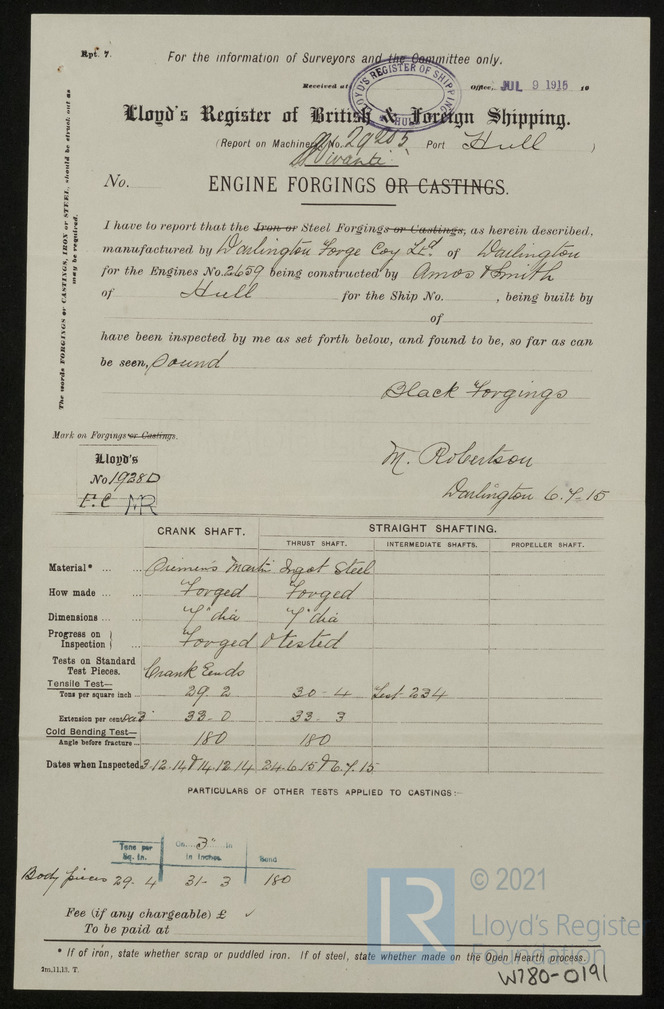 Rpt. 7.
For the information of Surveyors and the Committee only.
Received at Office, JUL 9 1915 19
LLOYD'S REGISTER OF SHIPPING
HULL
Lloyd's Register of British & Foreign Shipping.
(Report on Machinery No. 29205 Port Hull )
No.
ENGINE FORGINGS OR CASTINGS.
The words FORGINGS or CASTINGS, IRON or STEEL, should be struck out as may be required.
I have to report that the Iron or Steel Forgings or Castings, as herein described,
manufactured by Darlington Forge Coy Ltd. of Darlington
for the Engines No. 2659 being constructed by Amos & Smith
of Hull for the Ship No. , being built by
of
have been inspected by me as set forth below, and found to be, so far as can
be seen, Sound
Black Forgings
Mark on Forgings or Castings.
Lloyd's
No 1938D
F.C MR
M. Robertson
Darlington 6.7-15
CRANK SHAFT. STRAIGHT SHAFTING.
THRUST SHAFT. INTERMEDIATE SHAFTS. PROPELLER SHAFT.
Material* ... ... Siemens Martin Ingot Steel
How made ... ... Forged Forged
Dimensions ... ... 7" dia 7" dia
Progress on Inspection } ... Forged & tested
Tests on Standard Test Pieces. Crank Ends
Tensile Test—
Tons per square inch ... 29.2 30-4 Test-234
Extension per cent 33-0 33-3
Cold Bending Test—
Angle before fracture ... 180 180
Dates when Inspected 3-12-14 & 14.12.14 24-6.15 & 6.7.15
PARTICULARS OF OTHER TESTS APPLIED TO CASTINGS:—
Tons per Sq. In. On 3" in in inches. Bend
Body pieces 29-4 31-3 180
Fee (if any chargeable) £ ✓
To be paid at
* If of iron, state whether scrap or puddled iron. If of steel, state whether made on the Open Hearth process.
2m,11,13. T.
LR © 2021
Lloyd's Register
Foundation
W780-0191